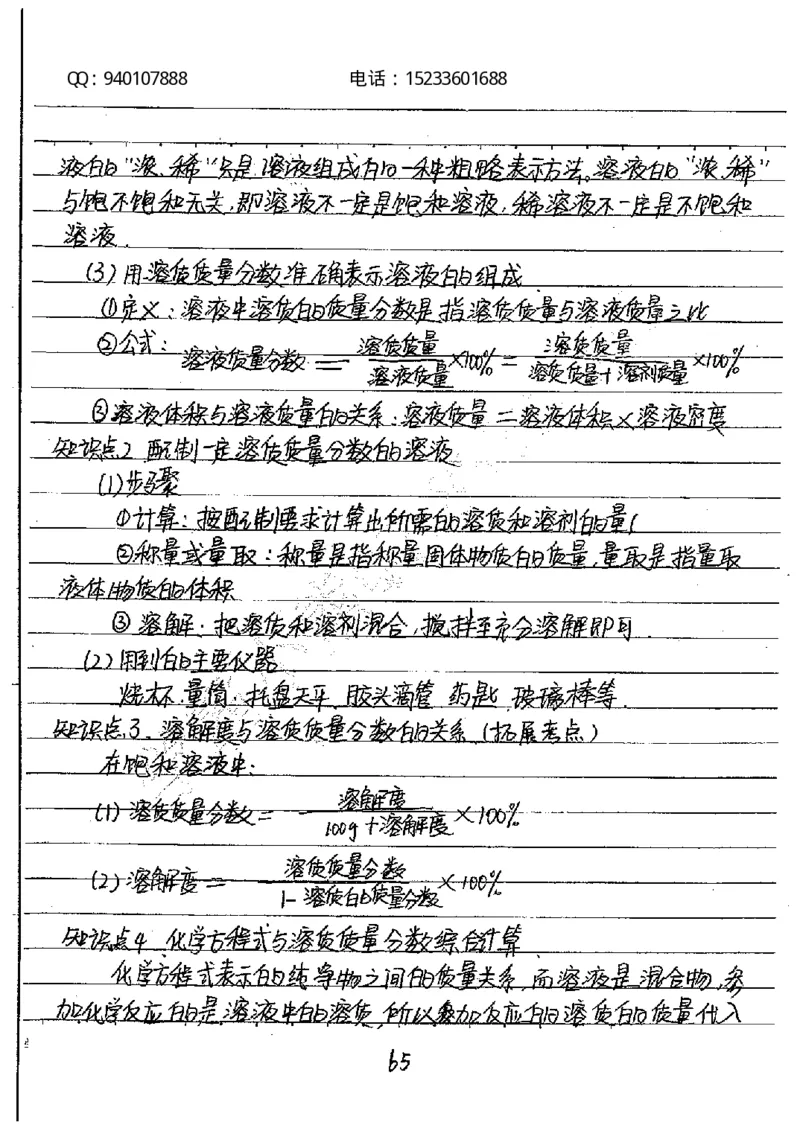 QQ：940107888 电话：15233601688
液的"浓、稀"只是溶液组成的一种粗略表示方法,溶液的"浓、稀"
与饱不饱和无关,即溶液不一定是饱和溶液,稀溶液不一定是不饱和
溶液.
(3)用溶质质量分数准确表示溶液的组成
①定义:溶液中溶质的质量分数是指溶质质量与溶液质量之比
②公式: 溶液质量分数 = 溶质质量/溶液质量 ×100% = 溶质质量/溶质质量+溶剂质量 ×100%
③溶液体积与溶液质量的关系:溶液质量=溶液体积×溶液密度
知识点2 配制一定溶质质量分数的溶液
(1)步骤
①计算:按配制要求计算出所需的溶质和溶剂的量(
②称量或量取:称量是指称量固体物质的质量,量取是指量取
液体物质的体积
③溶解:把溶质和溶剂混合,搅拌至充分溶解即可.
(2)用到的主要仪器
烧杯.量筒.托盘天平 胶头滴管 药匙 玻璃棒等.
知识点3.溶解度与溶质质量分数的关系(拓展考点)
在饱和溶液中:
(1)溶质质量分数= 溶解度/100g+溶解度 ×100%
(2)溶解度= 溶质质量分数/1-溶质的质量分数 ×100%
知识点4 化学方程式与溶质质量分数综合计算
化学方程式表示的纯净物之间的质量关系,而溶液是混合物,参
加化学反应的是溶液中的溶质,所以参加反应的溶质的质量代入
65